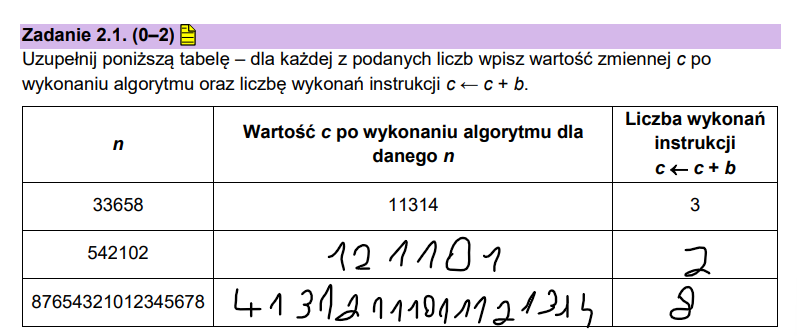 Zadanie 2.1. (0–2)
Uzupełnij poniższą tabelę – dla każdej z podanych liczb wpisz wartość zmiennej c po
wykonaniu algorytmu oraz liczbę wykonań instrukcji c ← c + b.
n
Wartość c po wykonaniu algorytmu dla
danego n
Liczba wykonań
instrukcji
c ← c + b
33658
11314
3
542102
121101
2
87654321012345678
41312111011121314
8